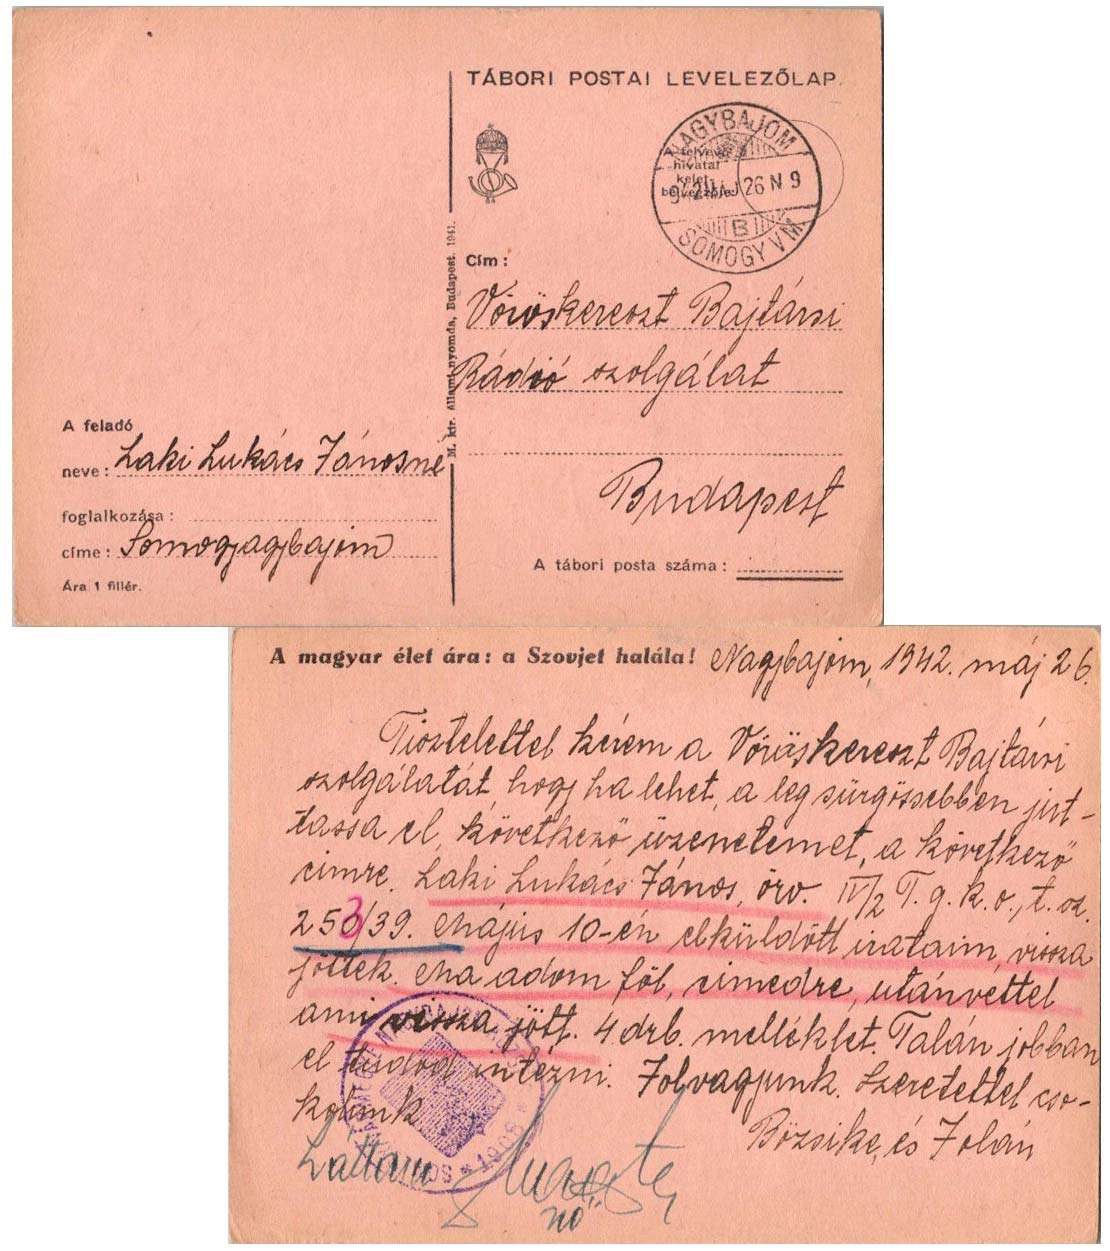 TÁBORI POSTAI LEVELEZŐLAP.
NAGYBAJOM
942 MÁJ 26 N 9
B
SOMOGY VM
A felvevő
hivatal
kelet-
bélyegzője
84
Cím:
Vöröskereszt Bajtársi
Rádió szolgálat
Budapest
A tábori posta száma:
M. kir. állami nyomda, Budapest. 1941.
A feladó
neve: Laki Lukács Jánosné
foglalkozása:
címe: Somogjagjbajom
Ára 1 fillér.
A magyar élet ára: a Szovjet halála! Nagjbajom, 1942. máj 26.
Tisztelettel kérem a Vöröskereszt Bajtársi
szolgálatát, hogj ha lehet, a leg sürgőssebben jut-
tassa el, következő üzenetemet, a következő
cimre. Laki Lukács János, örv. IV/2 T. g. k. o., t. sz.
250/39. Május 10-én elküldött irataim, vissza
3
jöttek. Ma adom föl, cimedre, utánvéttel
ami vissza jött. 4 drb. melléklet. Talán jobban
el tudod intézni. Jolvagjunk. Szeretettel cso-
kolunk
Bözsike, és Zolán
Láttam
1908